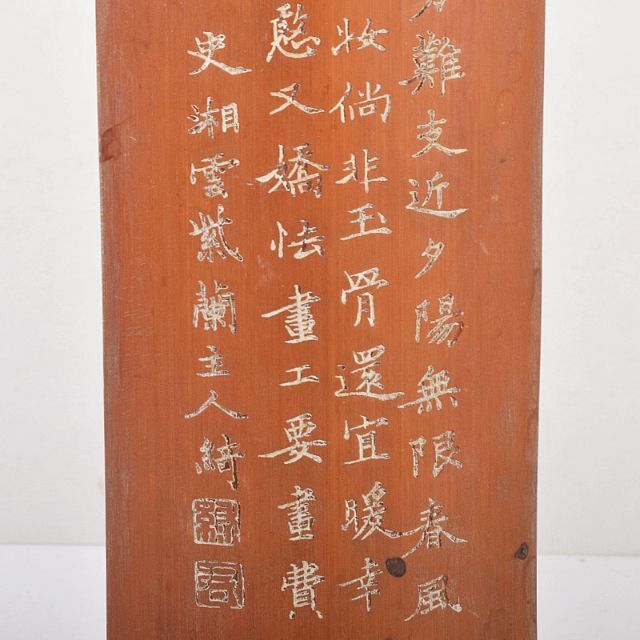 難支近夕陽無限春風
妝倘非玉骨還宜暖幸
憨又嬌怯畫工要畫費
史湘雲紫蘭主人綺